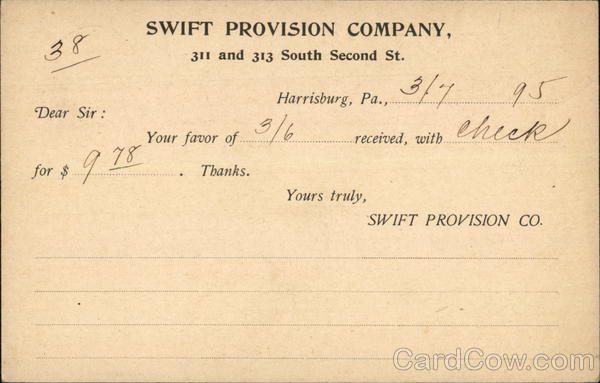 SWIFT PROVISION COMPANY,
311 and 313 South Second St.
38
Harrisburg, Pa., 3/7 95
Dear Sir:
Your favor of 3/6 received, with check
for $ 9 78. Thanks.
Yours truly,
SWIFT PROVISION CO.
CardCow.com